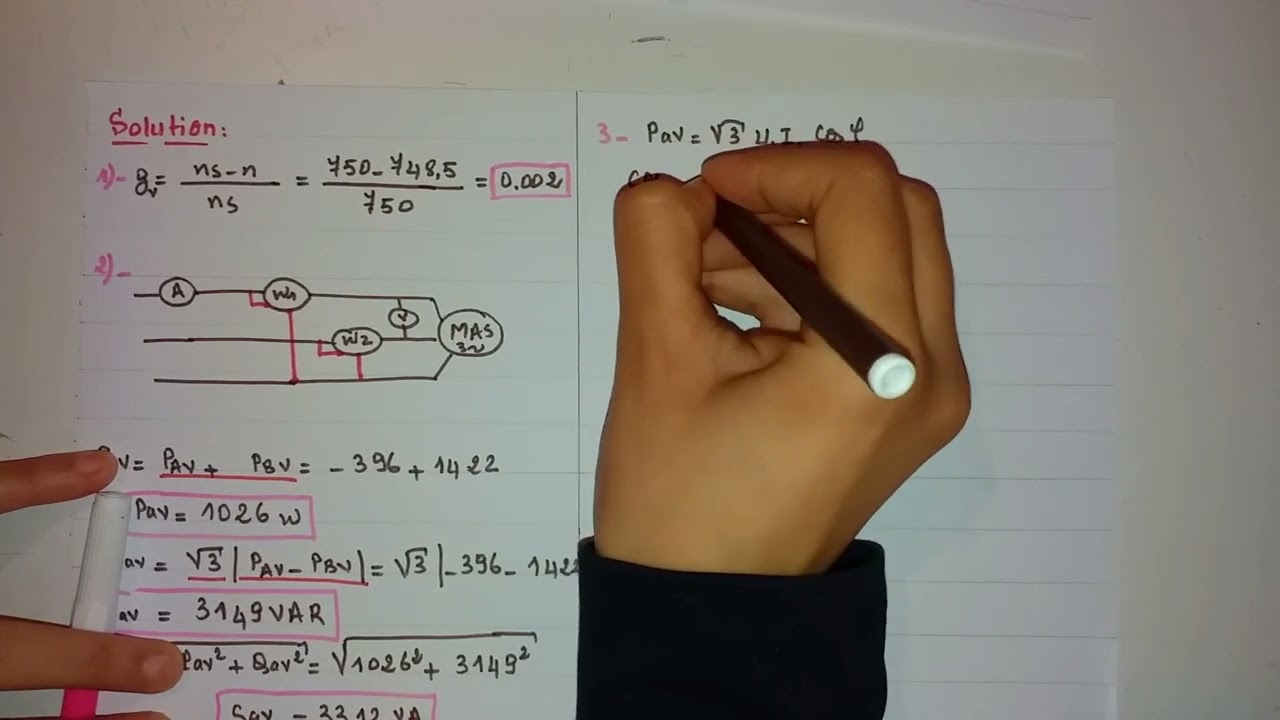 Solution:
1)- gv = ns-n / ns = 750-748,5 / 750 = 0.002
2)-
A W1
V
W2 MAS
3~
V = PAV + PBV = -396 + 1422
Pav = 1026 W
av = √3 | PAV - PBV | = √3 | -396 - 1422
av = 3149 VAR
Pav² + Qav² = √1026² + 3149²
Sav = 3312 VA
3- Pav = √3 U.I. cos φ